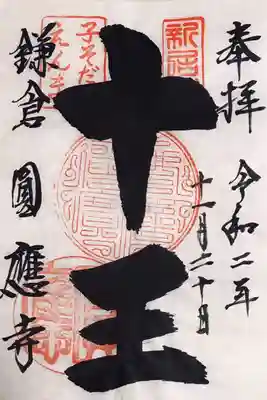 奉拝
令和二年
十一月二十日
新居
十王
子そだて
えんま
鎌倉
圓應寺